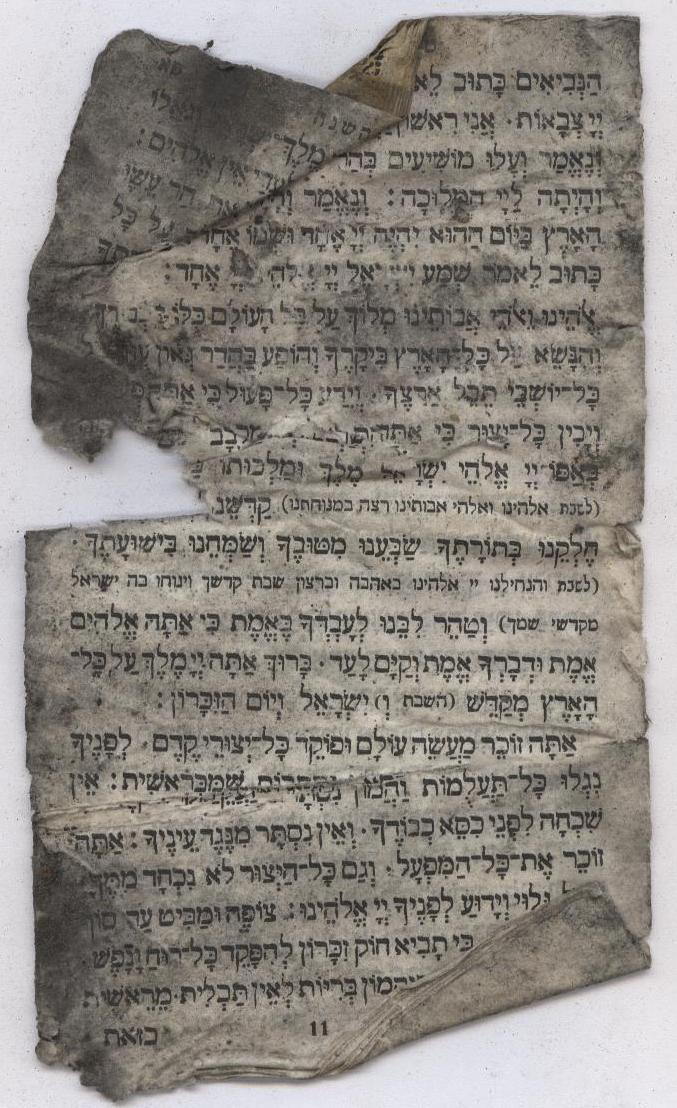 הַנְּבִיאִים כָּתוּב
יְיָ צְבָאוֹת. אֲנִי רִאשׁוֹן
וְנֶאֱמַר וְעָלוּ מוֹשִׁיעִים בְּהַר
וְהָיְתָה לַיְיָ הַמְּלוּכָה: וְנֶאֱמַר
הָאָרֶץ בַּיּוֹם הַהוּא יִהְיֶה יְיָ אֶחָד וּשְׁמוֹ אֶחָד:
כָּתוּב לֵאמֹר שְׁמַע יְיָ אֶחָד:
אֱלֹהֵינוּ וֵאלֹהֵי אֲבוֹתֵינוּ מְלוֹךְ עַל כָּל הָעוֹלָם כֻּלּוֹ
וְהִנָּשֵׂא עַל כָּל־הָאָרֶץ בִּיקָרֶךָ וְהוֹפַע בַּהֲדַר גְּאוֹן
כָּל־יוֹשְׁבֵי תֵבֵל אַרְצֶךָ. וְיֵדַע כָּל־פָּעוּל כִּי
וְיָבִין כָּל־יְצוּר כִּי אַתָּה
בְּאַפּוֹ יְיָ אֱלֹהֵי מֶלֶךְ וּמַלְכוּתוֹ
(לשבת אלהינו ואלהי אבותינו רצה במנוחתנו)
חֶלְקֵנוּ בְּתוֹרָתֶךָ שַׂבְּעֵנוּ מִטּוּבֶךָ וְשַׂמְּחֵנוּ בִּישׁוּעָתֶךָ.
(לשבת והנחילנו יי אלהינו באהבה וברצון שבת קדשך וינוחו בה ישראל
מקדשי שמך) וְטַהֵר לִבֵּנוּ לְעָבְדְּךָ בֶּאֱמֶת כִּי אַתָּה אֱלֹהִים
אֱמֶת וּדְבָרְךָ אֱמֶת וְקַיָּם לָעַד. בָּרוּךְ אַתָּה יְיָ מֶלֶךְ עַל כָּל־
הָאָרֶץ מְקַדֵּשׁ (השבת ו) יִשְׂרָאֵל וְיוֹם הַזִּכָּרוֹן:
אַתָּה זוֹכֵר מַעֲשֵׂה עוֹלָם וּפוֹקֵד כָּל־יְצוּרֵי קֶדֶם. לְפָנֶיךָ
נִגְלוּ כָּל־תַּעֲלֻמוֹת וַהֲמוֹן נִסְתָּרוֹת שֶׁמִּבְּרֵאשִׁית: אֵין
שִׁכְחָה לִפְנֵי כִסֵּא כְבוֹדֶךָ. וְאֵין נִסְתָּר מִנֶּגֶד עֵינֶיךָ: אַתָּה
זוֹכֵר אֶת־כָּל־הַמִּפְעָל. וְגַם כָּל־הַיְצוּר לֹא נִכְחַד מִמֶּךָּ.
גָּלוּי וְיָדוּעַ לְפָנֶיךָ יְיָ אֱלֹהֵינוּ: צוֹפֶה וּמַבִּיט עַד סוֹף
כִּי תָבִיא חוֹק זִכָּרוֹן לְהִפָּקֵד כָּל־רוּחַ וָנֶפֶשׁ
בְּרִיּוֹת לְאֵין תַּכְלִית. מֵרֵאשִׁית
11 כזאת